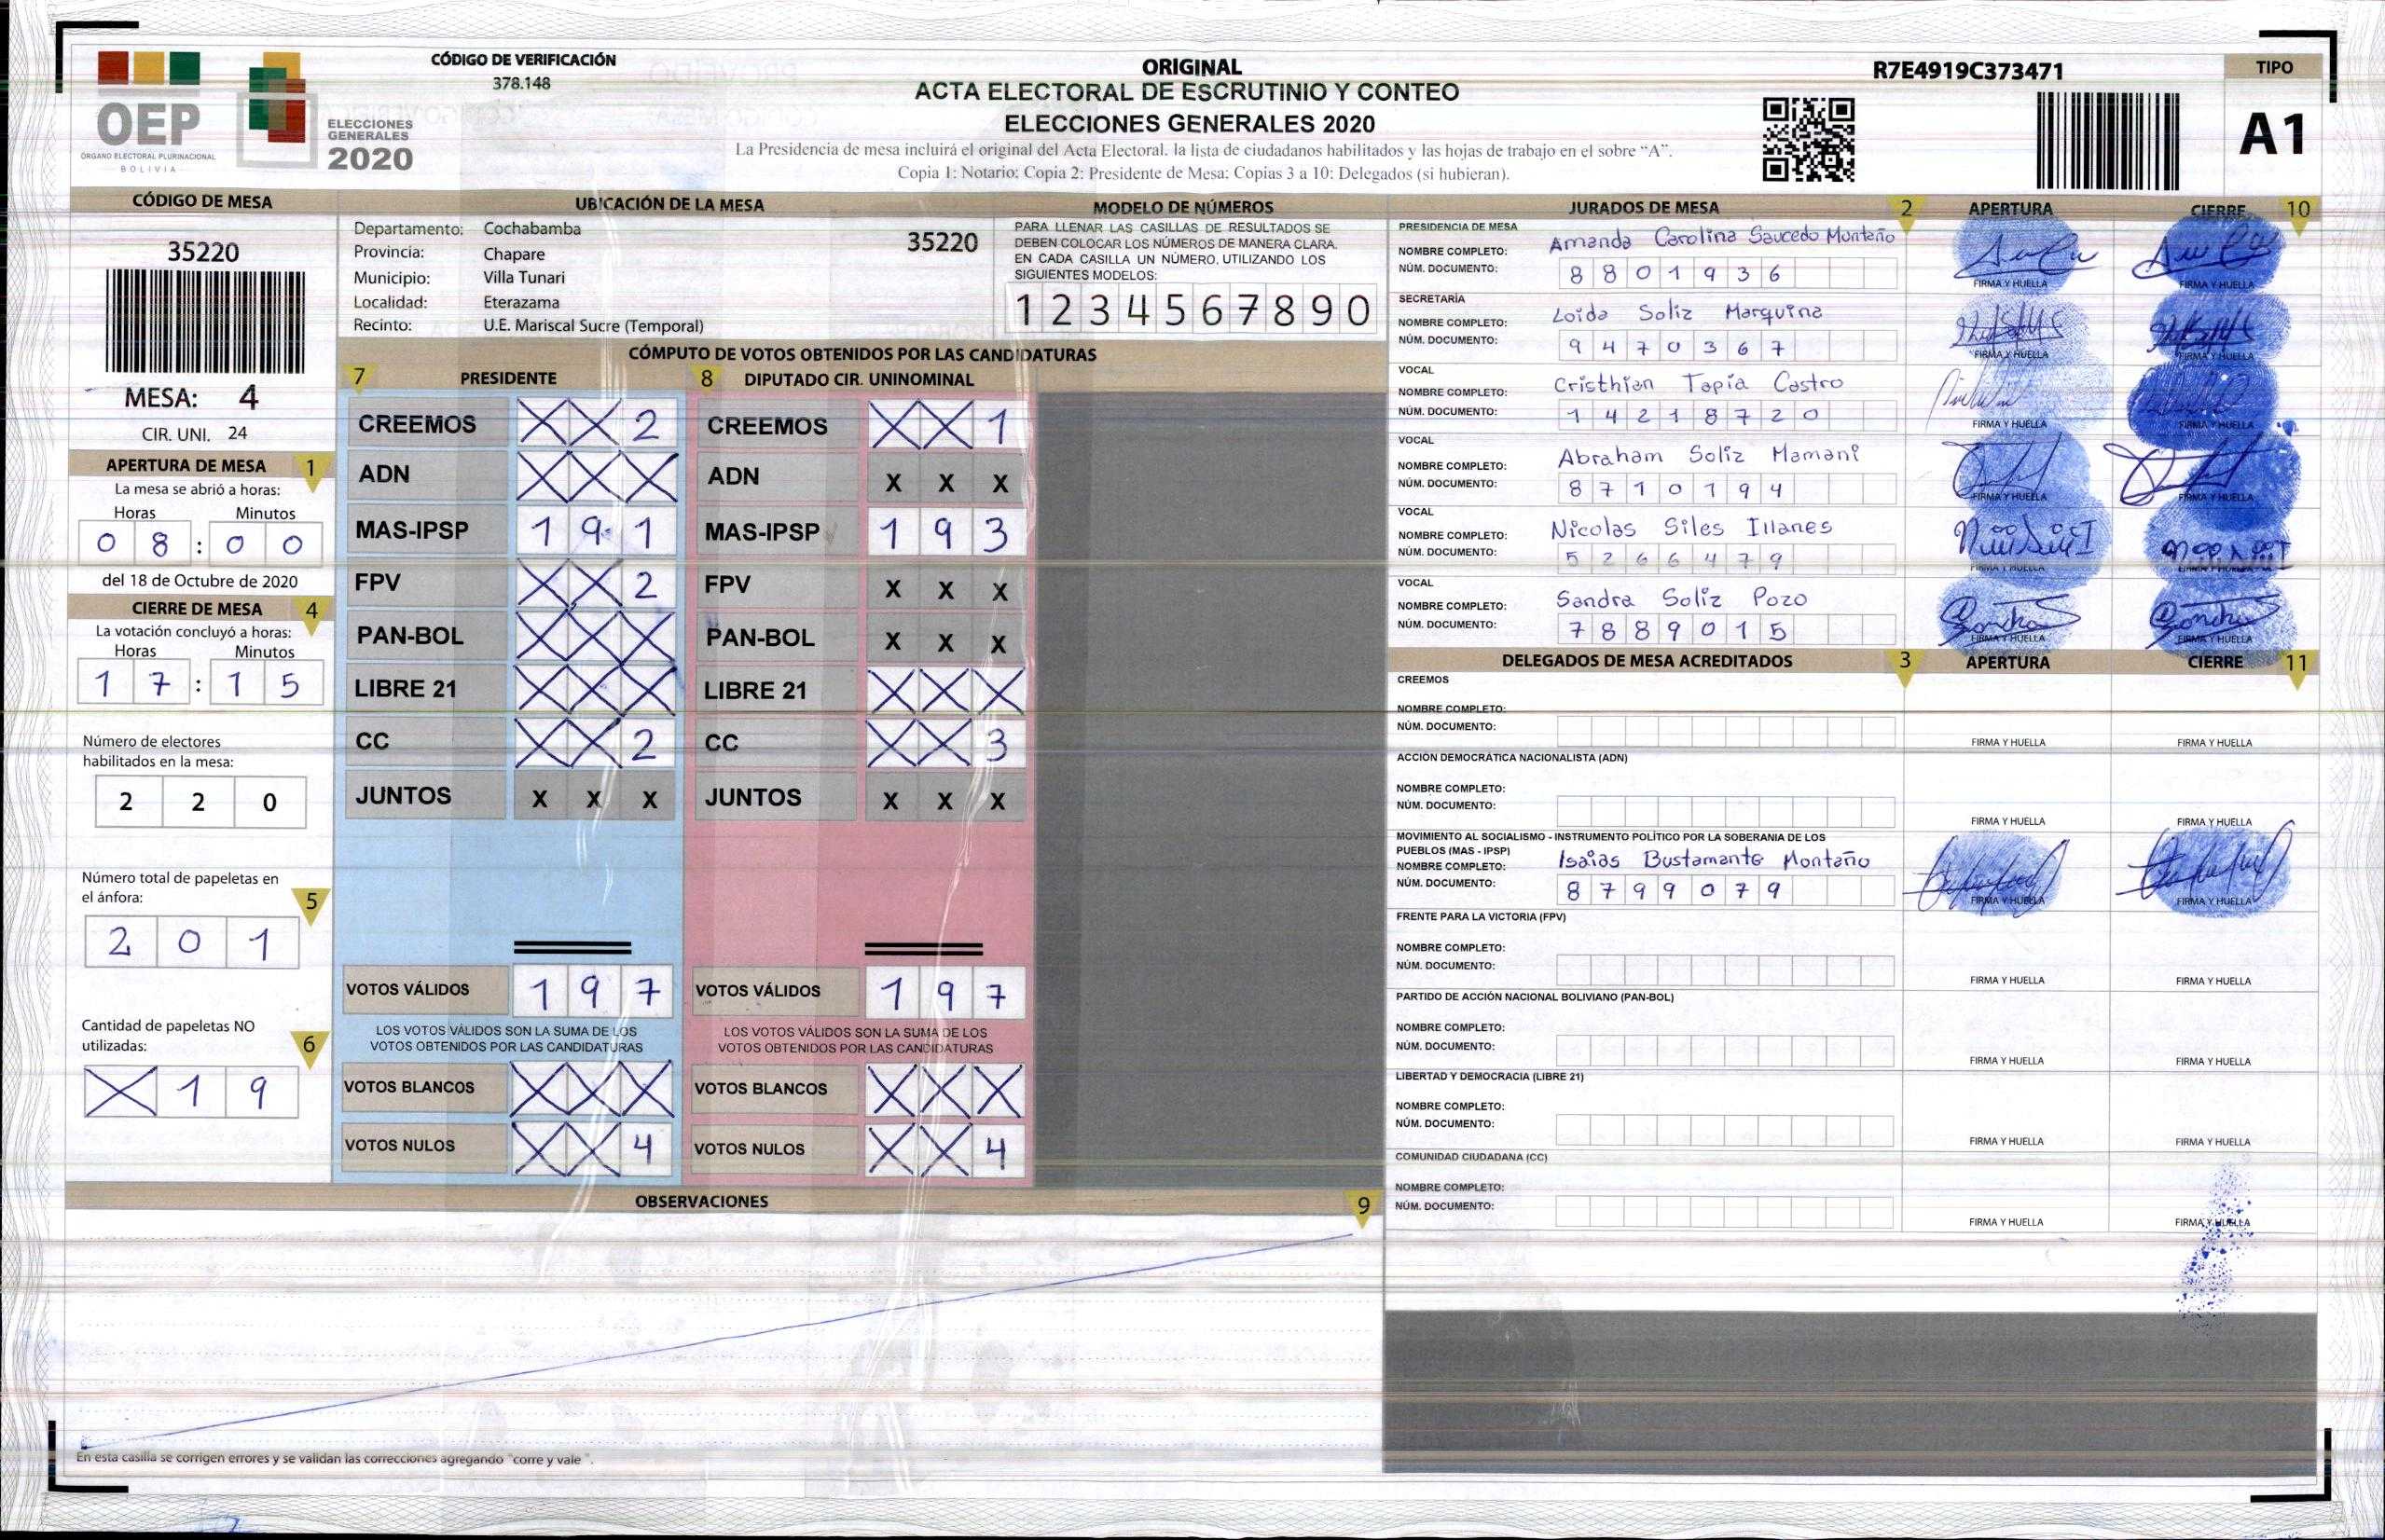 CÓDIGO DE VERIFICACIÓN
378.148
OEP
ÓRGANO ELECTORAL PLURINACIONAL
BOLIVIA
ELECCIONES
GENERALES
2020
ORIGINAL
ACTA ELECTORAL DE ESCRUTINIO Y CONTEO
ELECCIONES GENERALES 2020
La Presidencia de mesa incluirá el original del Acta Electoral. la lista de ciudadanos habilitados y las hojas de trabajo en el sobre “A”.
Copia 1: Notario: Copia 2: Presidente de Mesa: Copias 3 a 10: Delegados (si hubieran).
R7E4919C373471
TIPO
A1
CÓDIGO DE MESA
35220
MESA: 4
CIR. UNI. 24
APERTURA DE MESA 1
La mesa se abrió a horas:
Horas Minutos
0 8 : 0 0
del 18 de Octubre de 2020
CIERRE DE MESA 4
La votación concluyó a horas:
Horas Minutos
1 7 : 1 5
Número de electores
habilitados en la mesa:
2 2 0
Número total de papeletas en
el ánfora: 5
2 0 1
Cantidad de papeletas NO
utilizadas: 6
X 1 9
UBICACIÓN DE LA MESA
Departamento: Cochabamba
35220
Provincia: Chapare
Municipio: Villa Tunari
Localidad: Eterazama
Recinto: U.E. Mariscal Sucre (Temporal)
MODELO DE NÚMEROS
PARA LLENAR LAS CASILLAS DE RESULTADOS SE
DEBEN COLOCAR LOS NÚMEROS DE MANERA CLARA.
EN CADA CASILLA UN NÚMERO, UTILIZANDO LOS
SIGUIENTES MODELOS:
1 2 3 4 5 6 7 8 9 0
CÓMPUTO DE VOTOS OBTENIDOS POR LAS CANDIDATURAS
7 PRESIDENTE 8 DIPUTADO CIR. UNINOMINAL
CREEMOS X X 2 CREEMOS X X 1
ADN X X X ADN X X X
MAS-IPSP 1 9 1 MAS-IPSP 1 9 3
FPV X X 2 FPV X X X
PAN-BOL X X X PAN-BOL X X X
LIBRE 21 X X X LIBRE 21 X X X
CC X X 2 CC X X 3
JUNTOS X X X JUNTOS X X X
VOTOS VÁLIDOS 1 9 7 VOTOS VÁLIDOS 1 9 7
LOS VOTOS VÁLIDOS SON LA SUMA DE LOS LOS VOTOS VÁLIDOS SON LA SUMA DE LOS
VOTOS OBTENIDOS POR LAS CANDIDATURAS VOTOS OBTENIDOS POR LAS CANDIDATURAS
VOTOS BLANCOS X X X VOTOS BLANCOS X X X
VOTOS NULOS X X 4 VOTOS NULOS X X 4
OBSERVACIONES 9
En esta casilla se corrigen errores y se validan las correcciones agregando "corre y vale ".
JURADOS DE MESA 2 APERTURA CIERRE 10
PRESIDENCIA DE MESA
NOMBRE COMPLETO: Amanda Carolina Saucedo Montaño
NÚM. DOCUMENTO: 8 8 0 1 9 3 6
FIRMA Y HUELLA FIRMA Y HUELLA
SECRETARÍA
NOMBRE COMPLETO: Loida Soliz Marquina
NÚM. DOCUMENTO: 9 4 7 0 3 6 7
FIRMA Y HUELLA FIRMA Y HUELLA
VOCAL
NOMBRE COMPLETO: Cristhian Tapia Castro
NÚM. DOCUMENTO: 1 4 2 1 8 7 2 0
FIRMA Y HUELLA FIRMA Y HUELLA
VOCAL
NOMBRE COMPLETO: Abraham Soliz Mamani
NÚM. DOCUMENTO: 8 7 1 0 1 9 4
FIRMA Y HUELLA FIRMA Y HUELLA
VOCAL
NOMBRE COMPLETO: Nicolas Siles Illanes
NÚM. DOCUMENTO: 5 2 6 6 4 7 9
FIRMA Y HUELLA FIRMA Y HUELLA
VOCAL
NOMBRE COMPLETO: Sandra Soliz Pozo
NÚM. DOCUMENTO: 7 8 8 9 0 1 5
FIRMA Y HUELLA FIRMA Y HUELLA
DELEGADOS DE MESA ACREDITADOS 3 APERTURA CIERRE 11
CREEMOS
NOMBRE COMPLETO:
NÚM. DOCUMENTO:
FIRMA Y HUELLA FIRMA Y HUELLA
ACCIÓN DEMOCRÁTICA NACIONALISTA (ADN)
NOMBRE COMPLETO:
NÚM. DOCUMENTO:
FIRMA Y HUELLA FIRMA Y HUELLA
MOVIMIENTO AL SOCIALISMO - INSTRUMENTO POLÍTICO POR LA SOBERANIA DE LOS
PUEBLOS (MAS - IPSP)
NOMBRE COMPLETO: Isaias Bustamante Montaño
NÚM. DOCUMENTO: 8 7 9 9 0 7 9
FIRMA Y HUELLA FIRMA Y HUELLA
FRENTE PARA LA VICTORIA (FPV)
NOMBRE COMPLETO:
NÚM. DOCUMENTO:
FIRMA Y HUELLA FIRMA Y HUELLA
PARTIDO DE ACCIÓN NACIONAL BOLIVIANO (PAN-BOL)
NOMBRE COMPLETO:
NÚM. DOCUMENTO:
FIRMA Y HUELLA FIRMA Y HUELLA
LIBERTAD Y DEMOCRACIA (LIBRE 21)
NOMBRE COMPLETO:
NÚM. DOCUMENTO:
FIRMA Y HUELLA FIRMA Y HUELLA
COMUNIDAD CIUDADANA (CC)
NOMBRE COMPLETO:
NÚM. DOCUMENTO:
FIRMA Y HUELLA FIRMA Y HUELLA